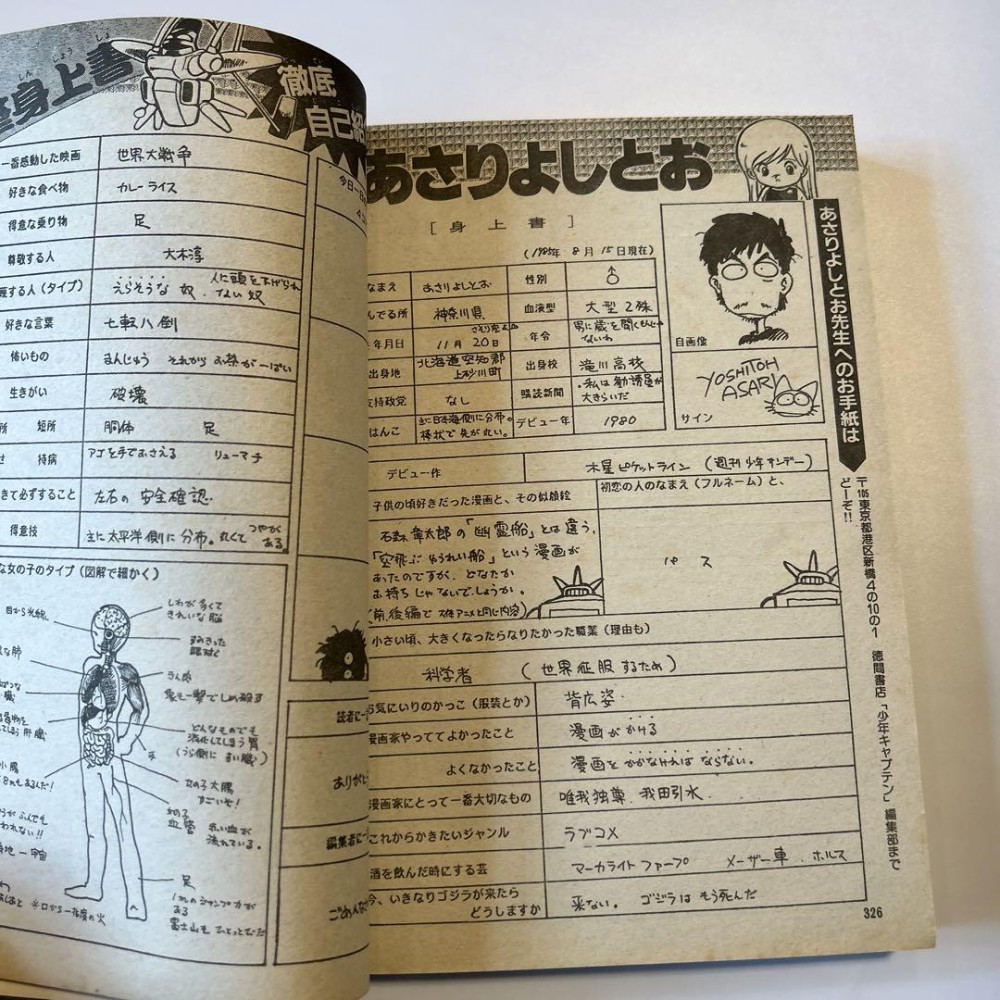 身上書
しんじょうしょ
徹底
自己紹
一番感動した映画 世界大戦争
好きな食べ物 カレーライス
得意な乗り物 足
尊敬する人 大木淳
する人(タイプ) えらそうな奴、ない奴 人に頭を下げられ
好きな言葉 七転八倒
怖いもの まんじゅう それから お茶が一ぱい
生きがい 破壊
所 短所 胴体 足
持病 アゴを手でおさえる リューマチ
きて必ずすること 左右の安全確認.
得意技 主に太平洋側に分布。丸くて つやがある。
な女の子のタイプ(図解で細かく)
目から光線
しわが多くてきれいな脳
な肺
どんなものでも消化してしまう胃
(うら側にまい臓)
小腸
女の子大腸
すごいぞ!
血管 赤い血が流れている。
足
富士山も ひとっとびだ
今日一
読者に一
ありがと
編集者に一
ごめんな
あさりよしとお
[身上書]
(1985年 8月 15日現在)
なまえ あさりよしとお 性別 ♂
んでる所 神奈川県 血液型 大型2殊
年月日 11月20日 さそり座 年令 男に歳を聞くもんじゃないわ
出身地 北海道空知郡上砂川町 出身校 滝川高校
支持政党 なし 購読新聞 ・私は勧誘員が大きらいだ
はんこ 主に日本海側に分布。棒状で先が丸い。 デビュー年 1980
自画像
YOSHITOH
ASARI
サイン
デビュー作 木星ピケットライン (週刊少年サンデー)
子供の頃好きだった漫画と、その似顔絵
石森章太郎の「幽霊船」とは違う、
「空飛ぶゆうれい船」という漫画が
あったのですが、どなたか
お持ちじゃないでしょうか。
(前,後編で 大体アニメと同じ内容)
初恋の人のなまえ(フルネーム)と、
パス
小さい頃、大きくなったらなりたかった職業(理由も)
科学者 (世界征服するため)
お気にいりのかっこ(服装とか) 背広姿.
漫画家やっててよかったこと 漫画がかける
よくなかったこと 漫画をかかなければならない.
漫画家にとって一番大切なもの 唯我独尊.我田引水.
これからかきたいジャンル ラブコメ
酒を飲んだ時にする芸 マーカライトファープ メーザー車.ホルス
今、いきなりゴジラが来たらどうしますか 来ない。ゴジラはもう死んだ
あさりよしとお先生へのお手紙は
〒105東京都港区新橋4の10の1 徳間書店「少年キャプテン」編集部まで
どーぞ!!
326